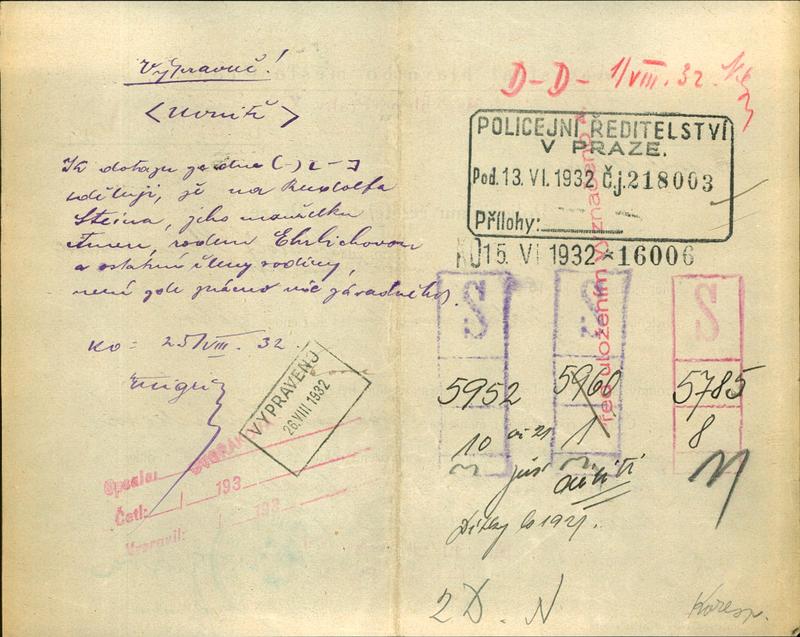 Výpravně!
<Uvnitř>
K dotazu ze dne (-) 2 - 7
sděluji, že na Rudolfa
Steina, jeho manželku
rozenu Ehrlichovou
a ostatní členy rodiny,
není zde známo nic závadného.
KO = 25/VIII. 32.
VYPRAVENO
26.VIII 1932
Opsala:
Četl: / 193
Vypravil: / 193
D-D- 1/VIII. 32.
POLICEJNÍ ŘEDITELSTVÍ
V PRAZE.
Pod. 13. VI. 1932 Č.j. 218003
Přílohy:
KO 15. VI 1932 * 16006
před uložením vyznačeno
S S S
5952 5960 5785
10 1 8
2D. N
Koresp.